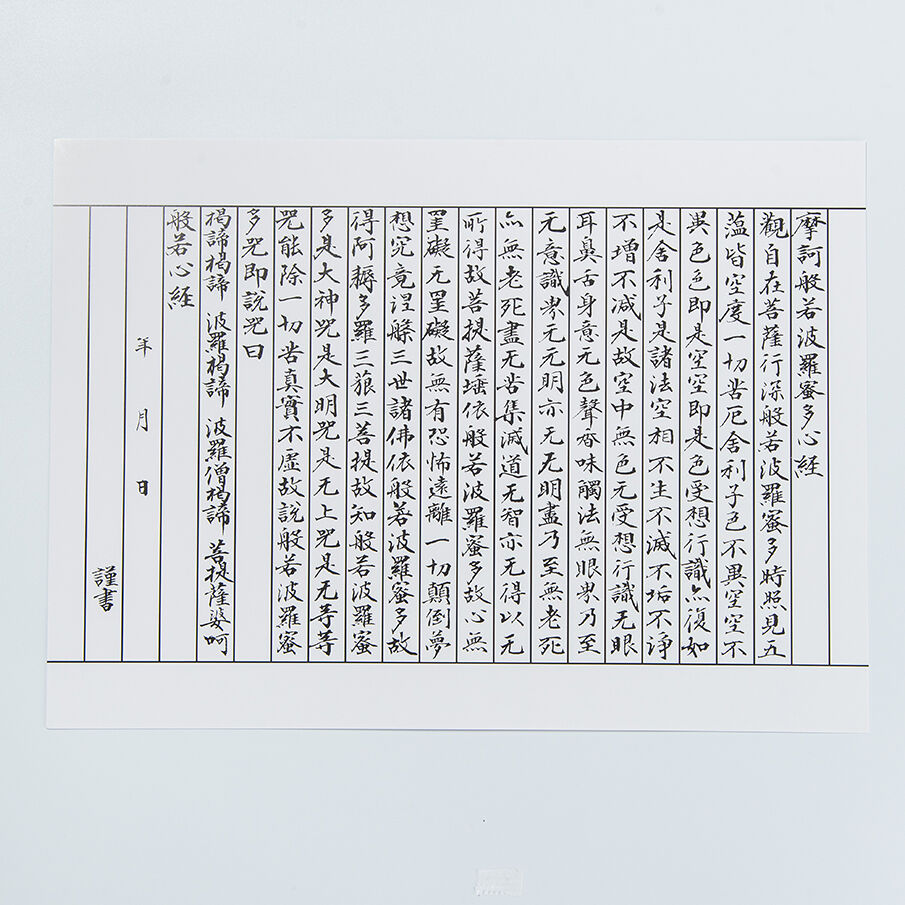 摩訶般若波羅蜜多心経
觀自在菩薩行深般若波羅蜜多時照見五
蕰皆空度一切苦厄舍利子色不異空空不
異色色即是空空即是色受想行識亦復如
是舍利子是諸法空相不生不滅不垢不浄
不増不減是故空中無色无受想行識无眼
耳鼻舌身意无色聲香味觸法無眼界乃至
无意識界无无明亦无无明盡乃至無老死
亦無老死盡无苦集滅道无智亦无得以无
所得故菩提薩埵依般若波羅蜜多故心無
罣礙无罣礙故無有恐怖遠離一切顛倒夢
想究竟涅槃三世諸佛依般若波羅蜜多故
得阿耨多羅三藐三菩提故知般若波羅蜜
多是大神咒是大明咒是无上咒是无等等
咒能除一切苦真實不虚故説般若波羅蜜
多咒即説咒曰
揭諦揭諦 波羅揭諦 波羅僧揭諦 菩提薩婆呵
般若心経
年 月 日
謹書